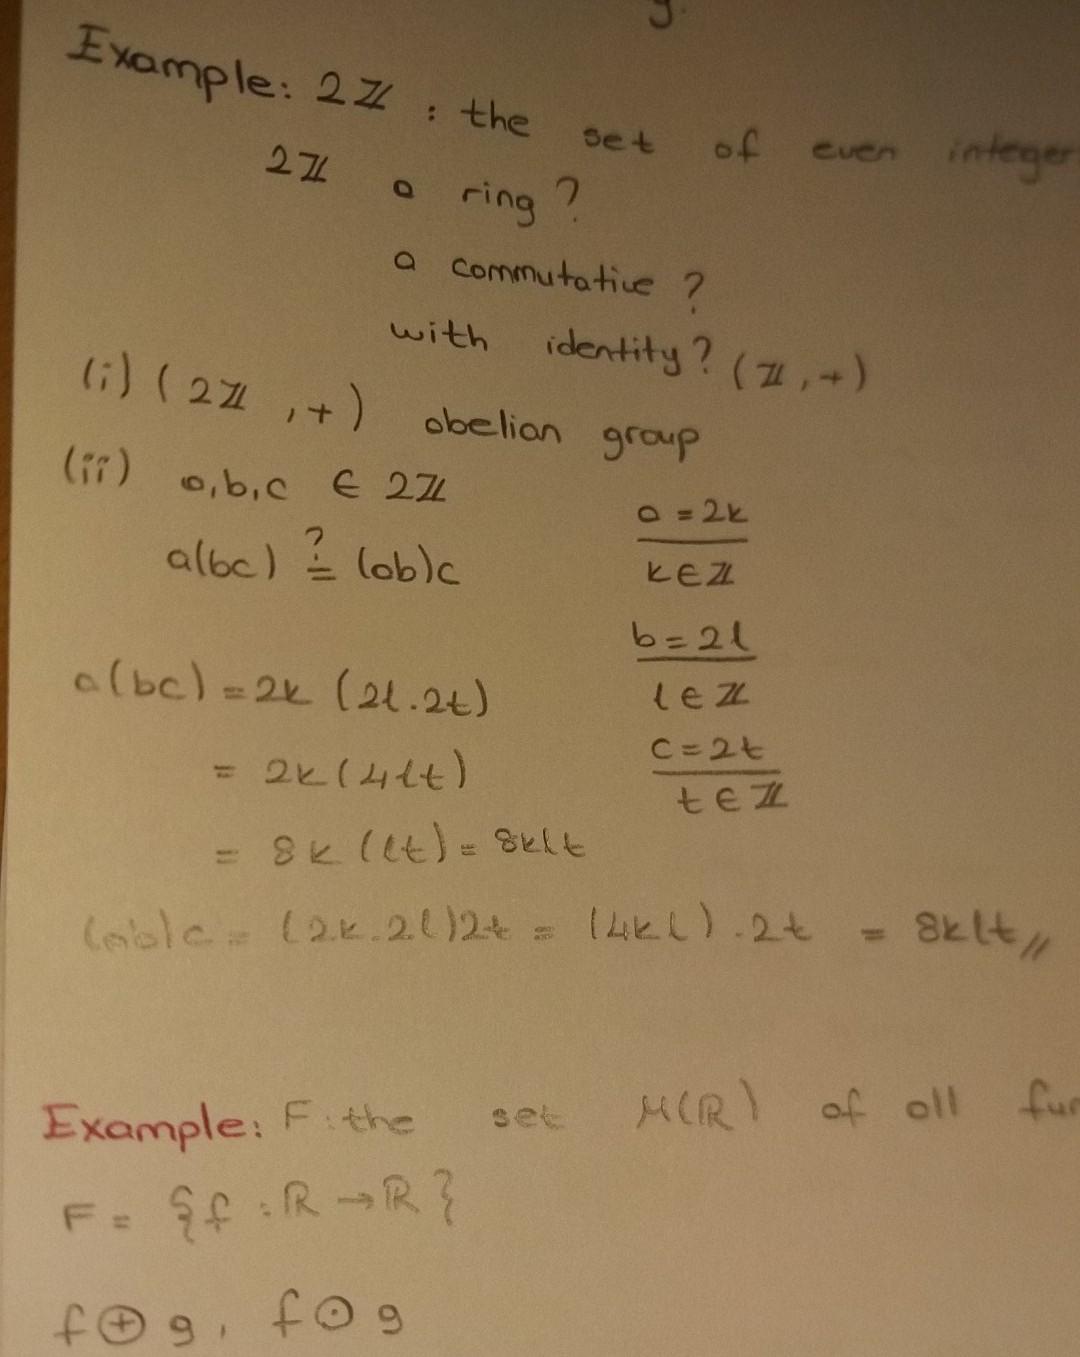 Example: 2ℤ : the set of even integer
2ℤ a ring?
a commutative?
with identity? (ℤ,+)
(i) (2ℤ,+) abelian group
(ii) a,b,c ∈ 2ℤ
a=2k
k∈ℤ
a(bc) ≟ (ab)c
b=2l
l∈ℤ
a(bc) = 2k (2l.2t)
c=2t
t∈ℤ
= 2k(4lt)
= 8k(lt) = 8klt
(ab)c = (2k.2l)2t = (4kl).2t = 8klt//
Example: F: the set M(ℝ) of all
F = {f : ℝ → ℝ}
f ⊕ g, f ⊙ g